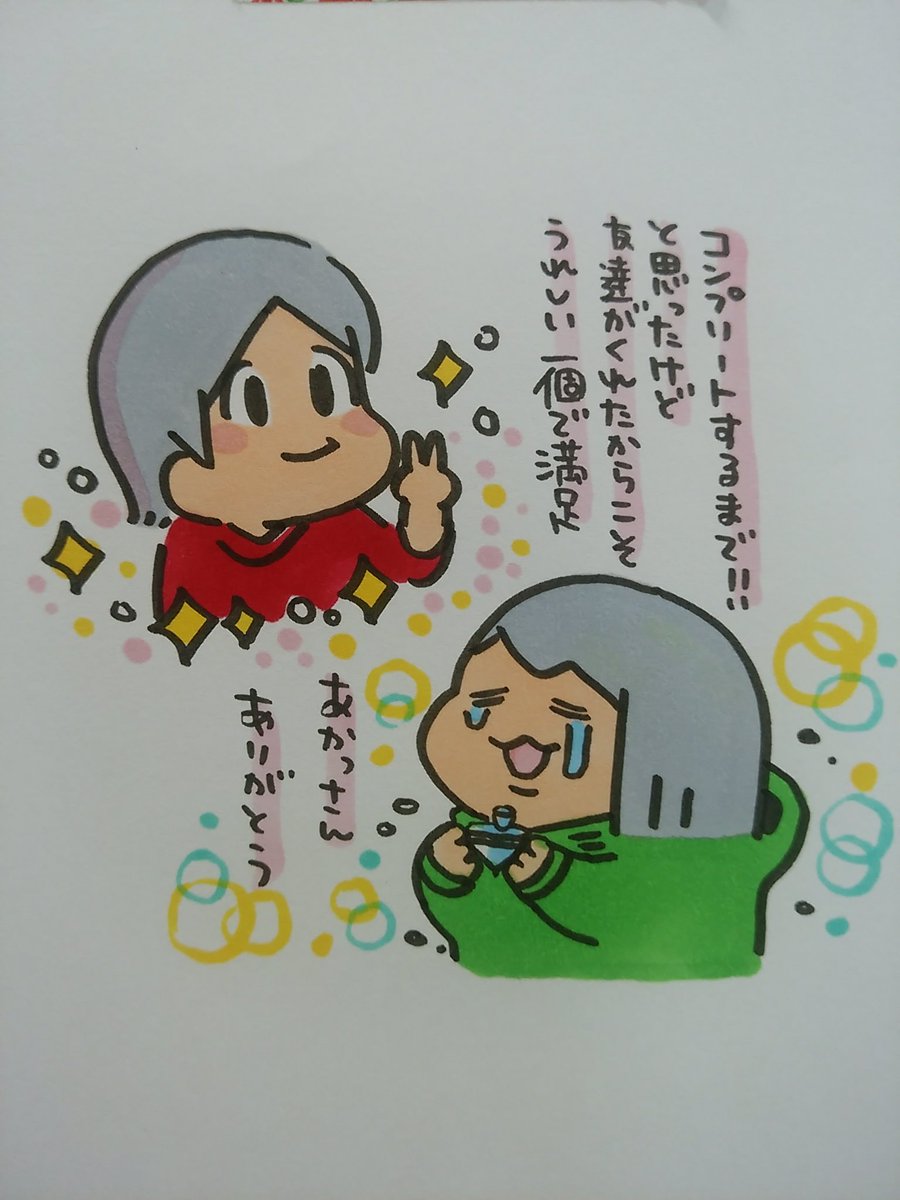 コンプリートするまで!!
と思ったけど
友達がくれたからこそ
うれしい 一個で満足
あかっさん
ありがとう